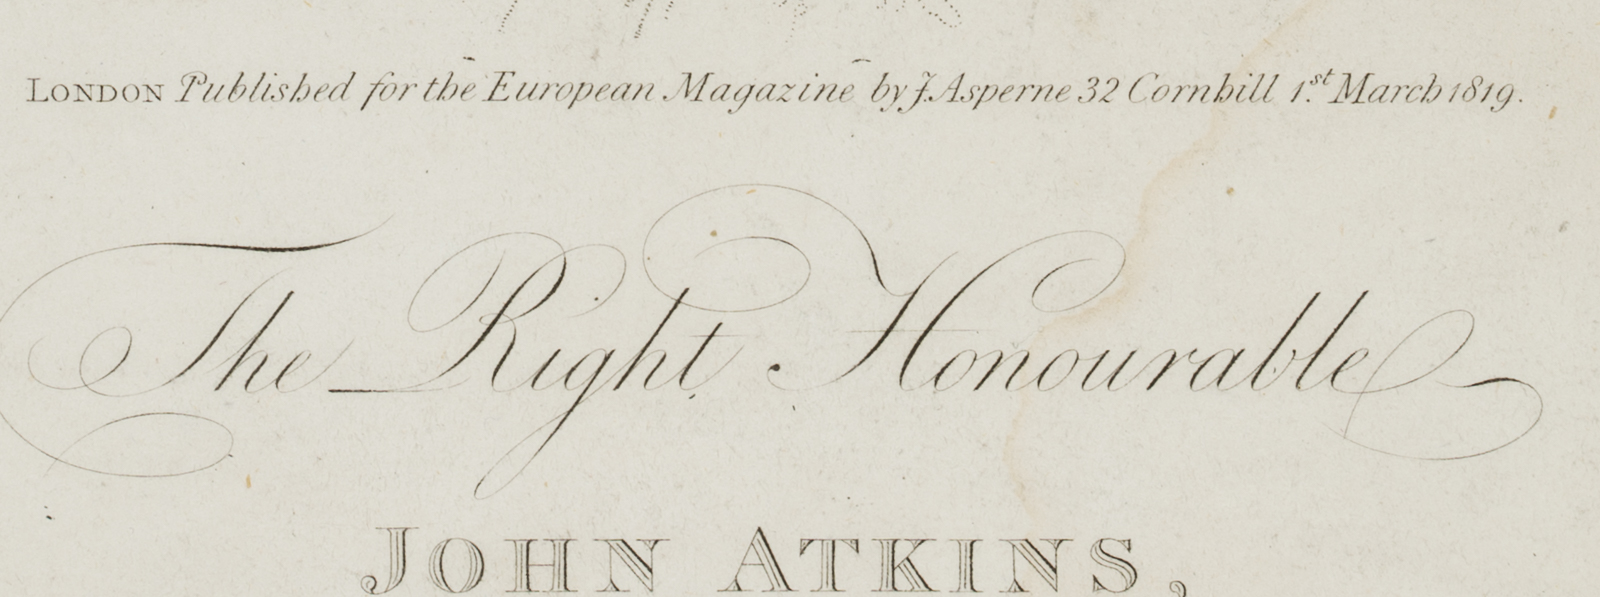 LONDON Published for the European Magazine by J. Asperne 32 Cornhill 1.st March 1819.
The Right Honourable
JOHN ATKINS,